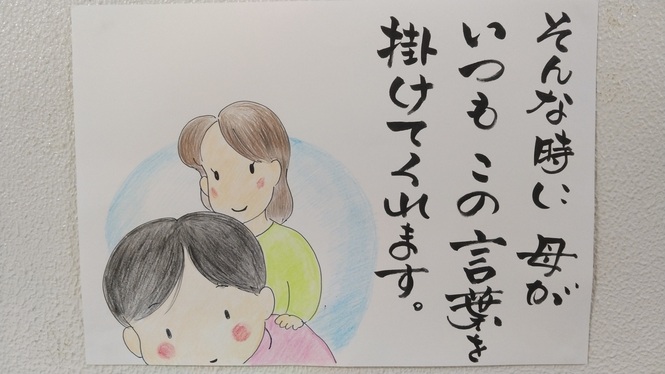 そんな時に 母が
いつも この 言葉を
掛けてくれます。